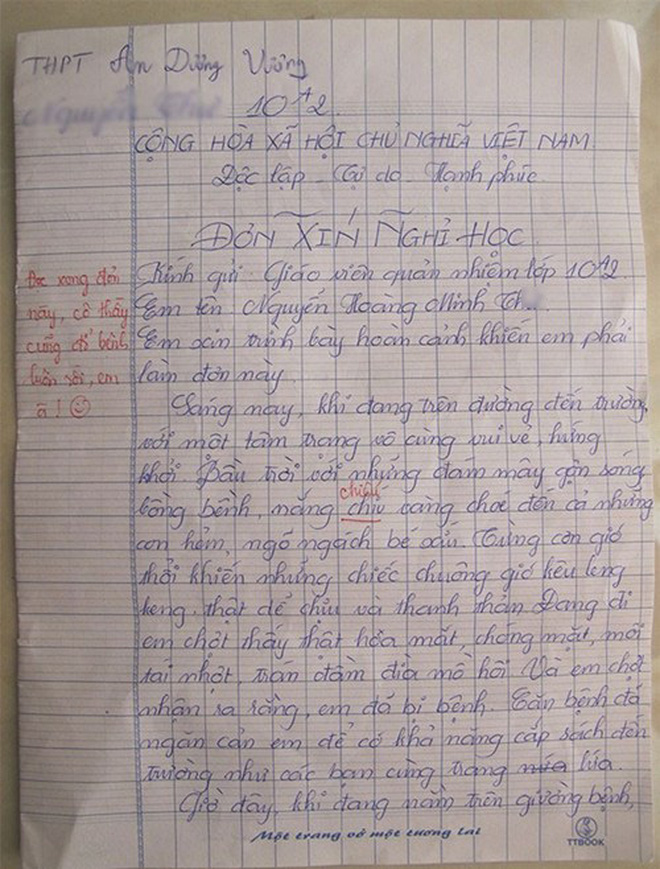 THPT An Dương Vương
Nguyễn Thư
10A2.
CỘNG HÒA XÃ HỘI CHỦ NGHĨA VIỆT NAM
Độc lập - Tự do - Hạnh phúc.
ĐƠN XIN NGHỈ HỌC
Kính gửi: Giáo viên quản nhiệm lớp 10A2.
Em tên: Nguyễn Hoàng Minh Th
Em xin trình bày hoàn cảnh khiến em phải
làm đơn này.
Đọc xong đơn
này, cô thấy
cũng đổ bệnh
luôn rồi, em
ạ! ☺
Sáng nay, khi đang trên đường đến trường,
với một tâm trạng vô cùng vui vẻ, hứng
khởi. Bầu trời với những đám mây gợn sóng
chiếu
bồng bềnh, nắng chíu vàng choé đến cả những
con hẻm, ngõ ngách bé xấu. Từng cơn gió
thổi khiến những chiếc chuông gió kêu leng
keng, thật dể chịu và thanh thản. Đang đi
em chợt thấy thật hoa mắt, chóng mặt, môi
tái nhợt, trán đầm đìa mồ hôi. Và em chợt
nhận ra rằng, em đã bị bệnh. Căn bệnh đã
ngăn cản em để có khả năng cắp sách đến
trường như các bạn cùng trang lứa.
Giờ đây, khi đang nằm trên giường bệnh,
Một trang vở một tương lai
TTBOOK